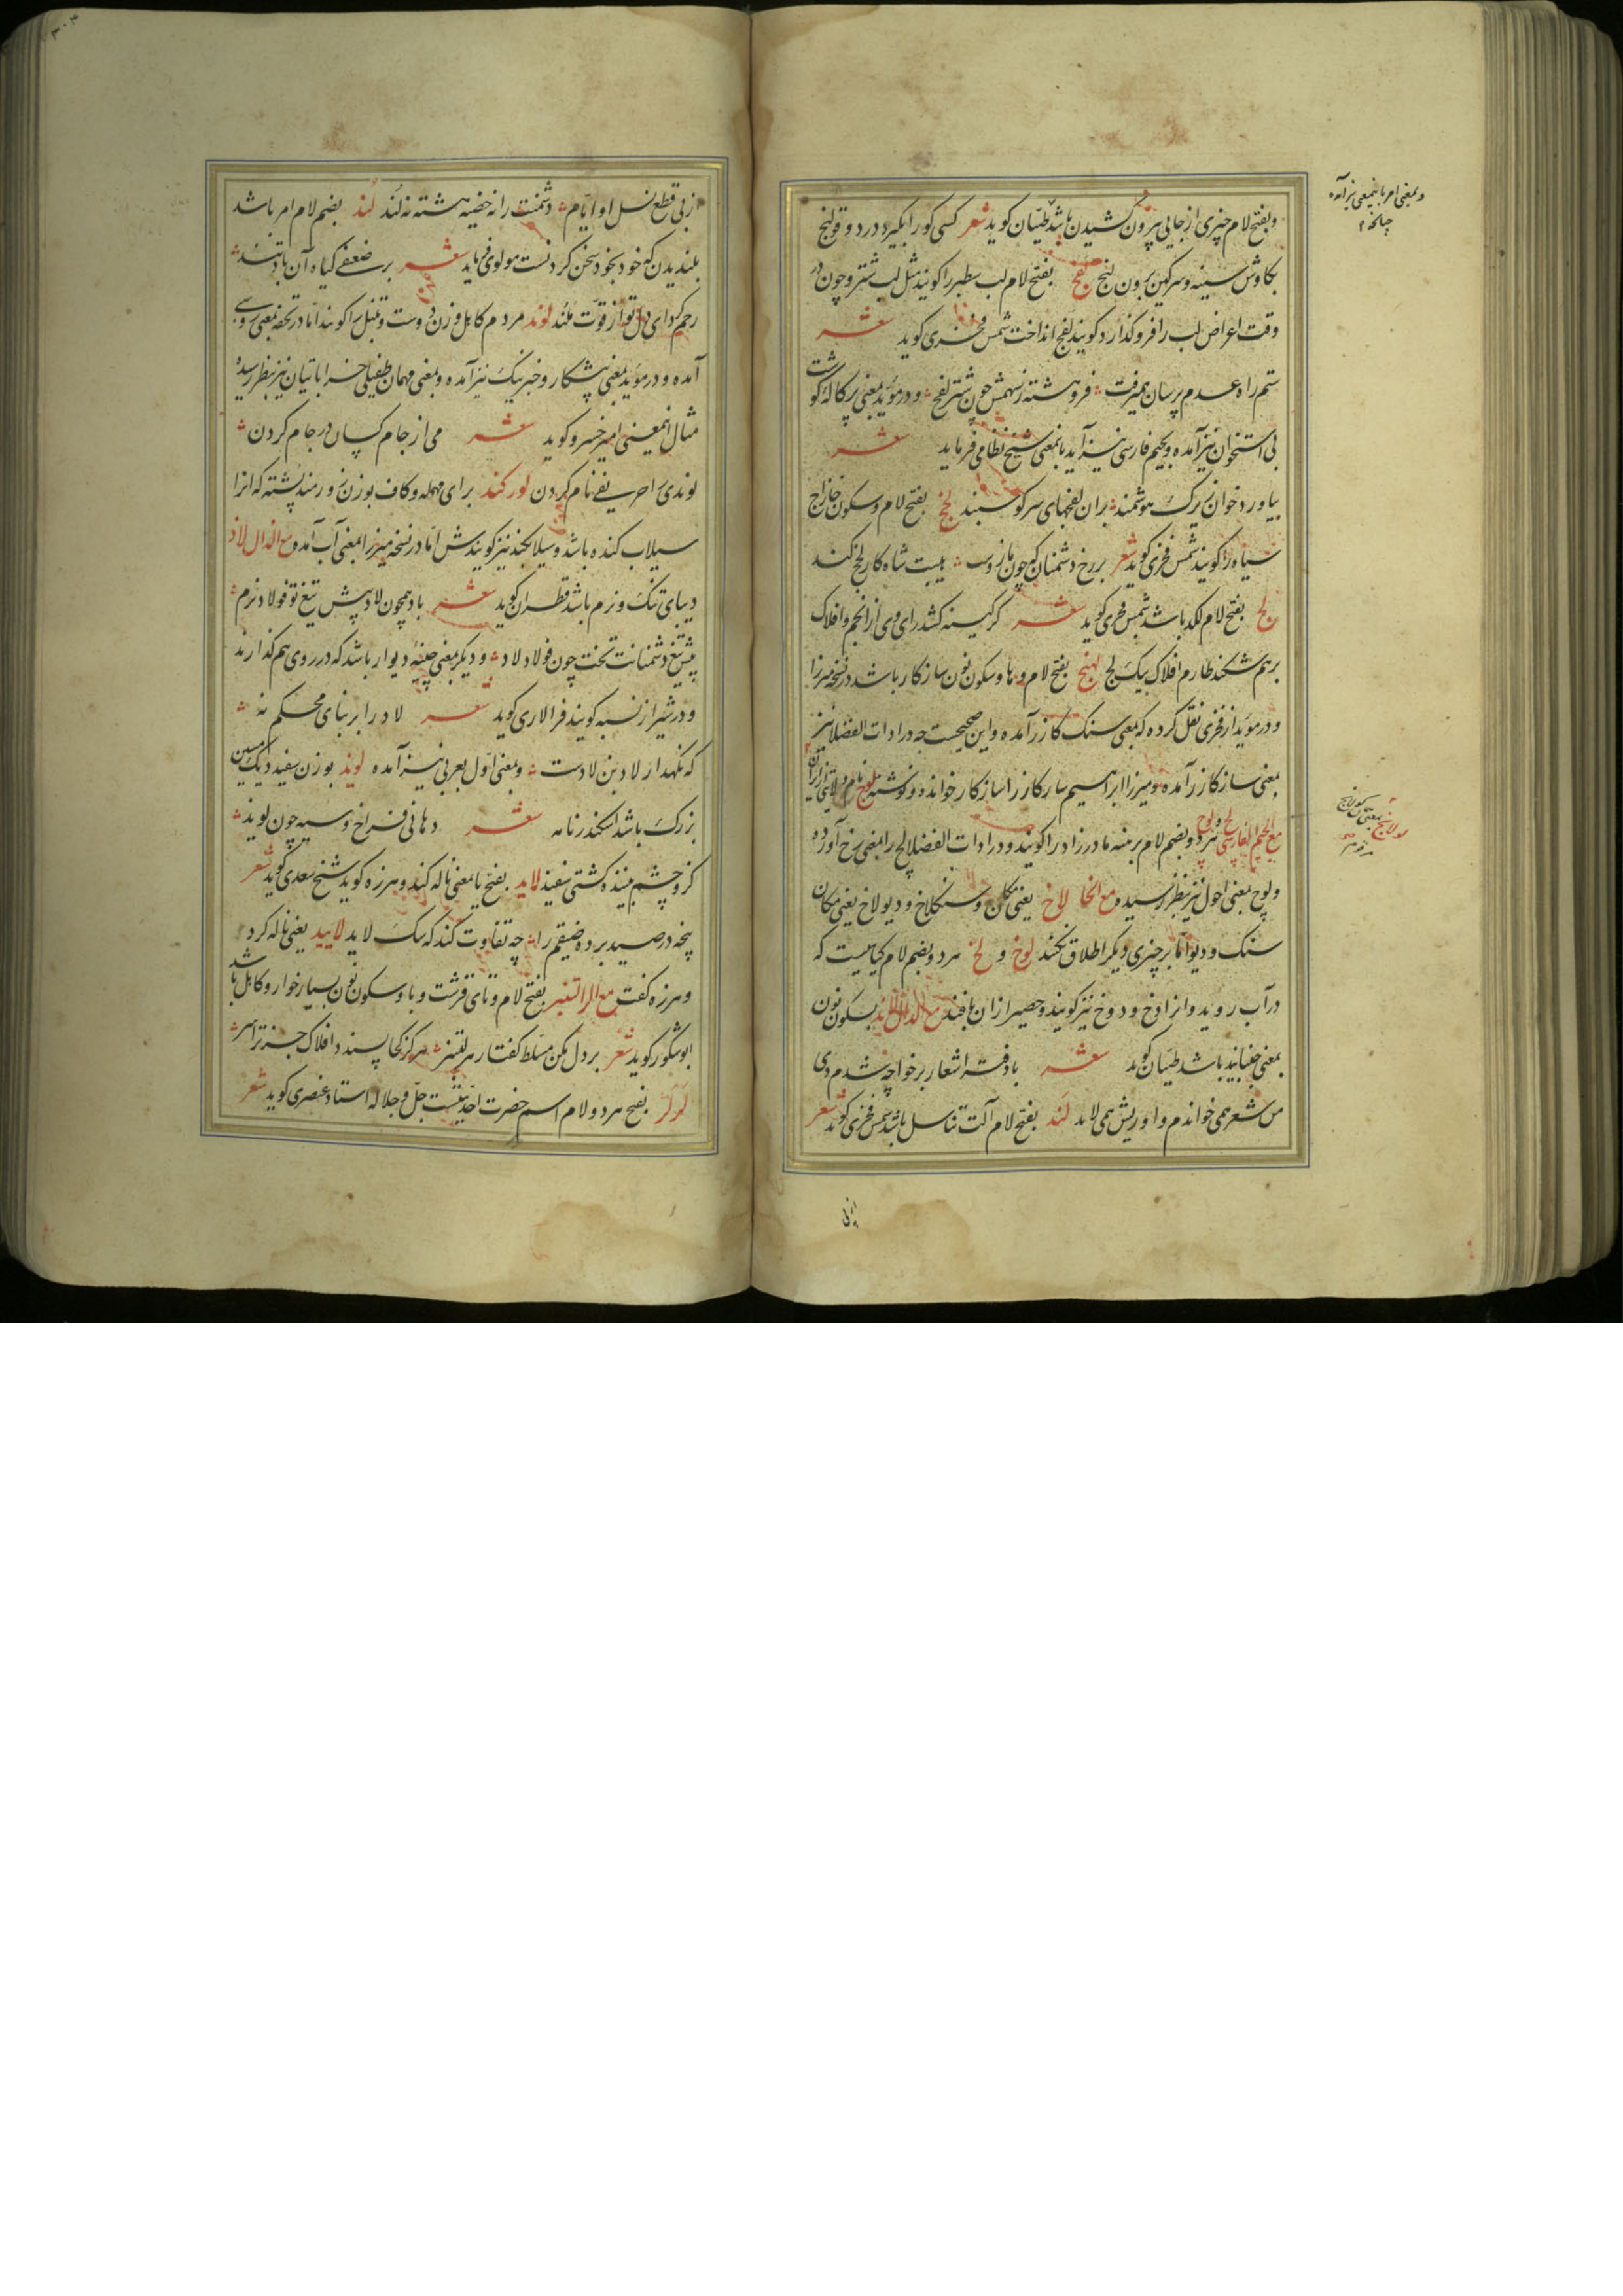 و بفتح لام چیزی از جایی بیرون کشیدن باشد طیّان کوید شعر کسی کو را بکیرد درد و قولنج
بکاوش سینه و سرکین برون لنج لفج بفتح لام لب سطبر را کویند مثل لب شتر و چون در
وقت اعراض لب را فرو کذارد کویند لفج انداخت شمس فخری کوید شعر
ستم راه عدم پرسان همیرفت فرو هشته ز سهمش چون شتر لفج و در مؤید بمعنی پرکاله کوشت
بی استخوان نیز آمده و بجیم فارسی نیز آید باینمعنی شیخ نظامی فرماید شعر
بیاورد خوان زیرک هوشمند بر آن لفجهای سر کوسبند لخج بفتح لام و سکون خا زاج
سیاه را کویند شمس فخری کوید شعر بر رخ دشمنان که چون مازوست هیبت شاه کار لخج کند
لج بفتح لام لکد باشد شمس فخری کوید شعر کر کینه کشد رای وی از انجم و افلاک
برهم شکند طارم افلاک بیک لج لهنج بفتح لام و ها و سکون نون ساز کار باشد در نسخه میرزا
و در مؤید از فخری نقل کرده که بمعنی سنک کازر آمده و این صحیحست چه در ادات الفضلا نیز
بمعنی ساز کازر آمده و میرزا ابراهیم ساز کازر را ساز کار خوانده و نوشته
مع الجیم الفارسی لچ و لوچ هر دو بضم لام برهنه مادرزاد را کویند و در ادات الفضلا لچ را بمعنی رخ آورده
و لوچ بمعنی احول نیز بنظر رسیده مع الخا لاخ یعنی مکان و سنکلاخ و دیولاخ یعنی مکان
سنک و دیو اما بر چیزی دیکر اطلاق نکنند لوخ و لخ هر دو بضم لام کیاهیست که
در آب روید و انرا دوخ و دوخ نیز کویند و حصیر از ان بافند مع الدال لاند بسکون نون
بمعنی جنباند باشد طیّان کوید شعر با دفتر اشعار بر خواجه شدم دی
من شعر همی خواندم و او ریش همی لاند لند بفتح لام آلت تناسل باشد شمس فخری کوید شعر
از پی
و بمعنی امر باینمعنی نیز آمده
از پی قطع نسل او ایّام دشمنت را نه خضیه هشته نه لند لند بضم لام امر باشد
بلندیدن که خود بخود سخن کردنست مولوی فرماید شعر بر ضعیفی کیاه آن باد تند
رحم کرد ای دل تو از قوت ملند لوند مردم کاهل و زن دوست و تنبل را کویند اما در تحفه بمعنی روسبی
آمده و در مؤید بمعنی پیشکار و خبر نیک نیز آمده و بمعنی مهمان طفیلی خراباتیان نیز بنظر رسیده
مثال اینمعنی امیر خسرو کوید شعر می از جام کسان در جام کردن
لوندی را حریفی نام کردن لورکند برای مهمله و کاف بوزن زورمند پشته که انرا
سیلاب کنده باشد و سیلابکند نیز کویندش اما در نسخه میرزا بمعنی آب آمده مع الذال لاذ
دیبای تنک و نرم باشد قطران کوید شعر باد همچون لاد پیش تیغ تو فولاد نرم
پیش تیغ دشمنانت تخت چون فولاد لاد و دیکر بمعنی چینهٔ دیوار باشد که در روی هم کذارند
و در شیراز نسبه کویند فرالاری کوید شعر لاد را بر بنای محکم نه
که نکهدار لاد بن لادست و بمعنی اول بعربی نیز آمده لوید بوزن سفید دیک مسین
بزرک باشد اسکندرنامه شعر دهانی فراخ و سیه چون لوید
کزو چشم بیننده کشتی سفید لاید بفتح یا بمعنی ناله کند و هرزه کوید شیخ سعدی کوید شعر
پنجه در صید برده ضیغم را چه تفاوت کند که سک لاید لایید یعنی ناله کرد
و هرزه کفت مع الرا لتنبر بفتح لام و تای قرشت و با و سکون نون بسیار خوار و کاهل باشد
ابوشکور کوید شعر بر دل مکن مسلط کفتار هر لتنبر هرکز کجا پسندد افلاک جز ترا سر
لرلر بفتح هر دو لام اسم حضرت احدیتست جل و جلاله استاد عنصری کوید شعر